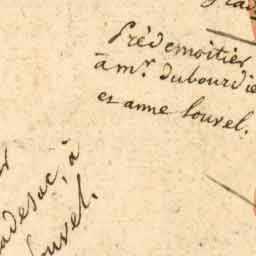 Prédemoitier
à mr. dubourdie
et anne Louvel.
adesac, à
Louvel.